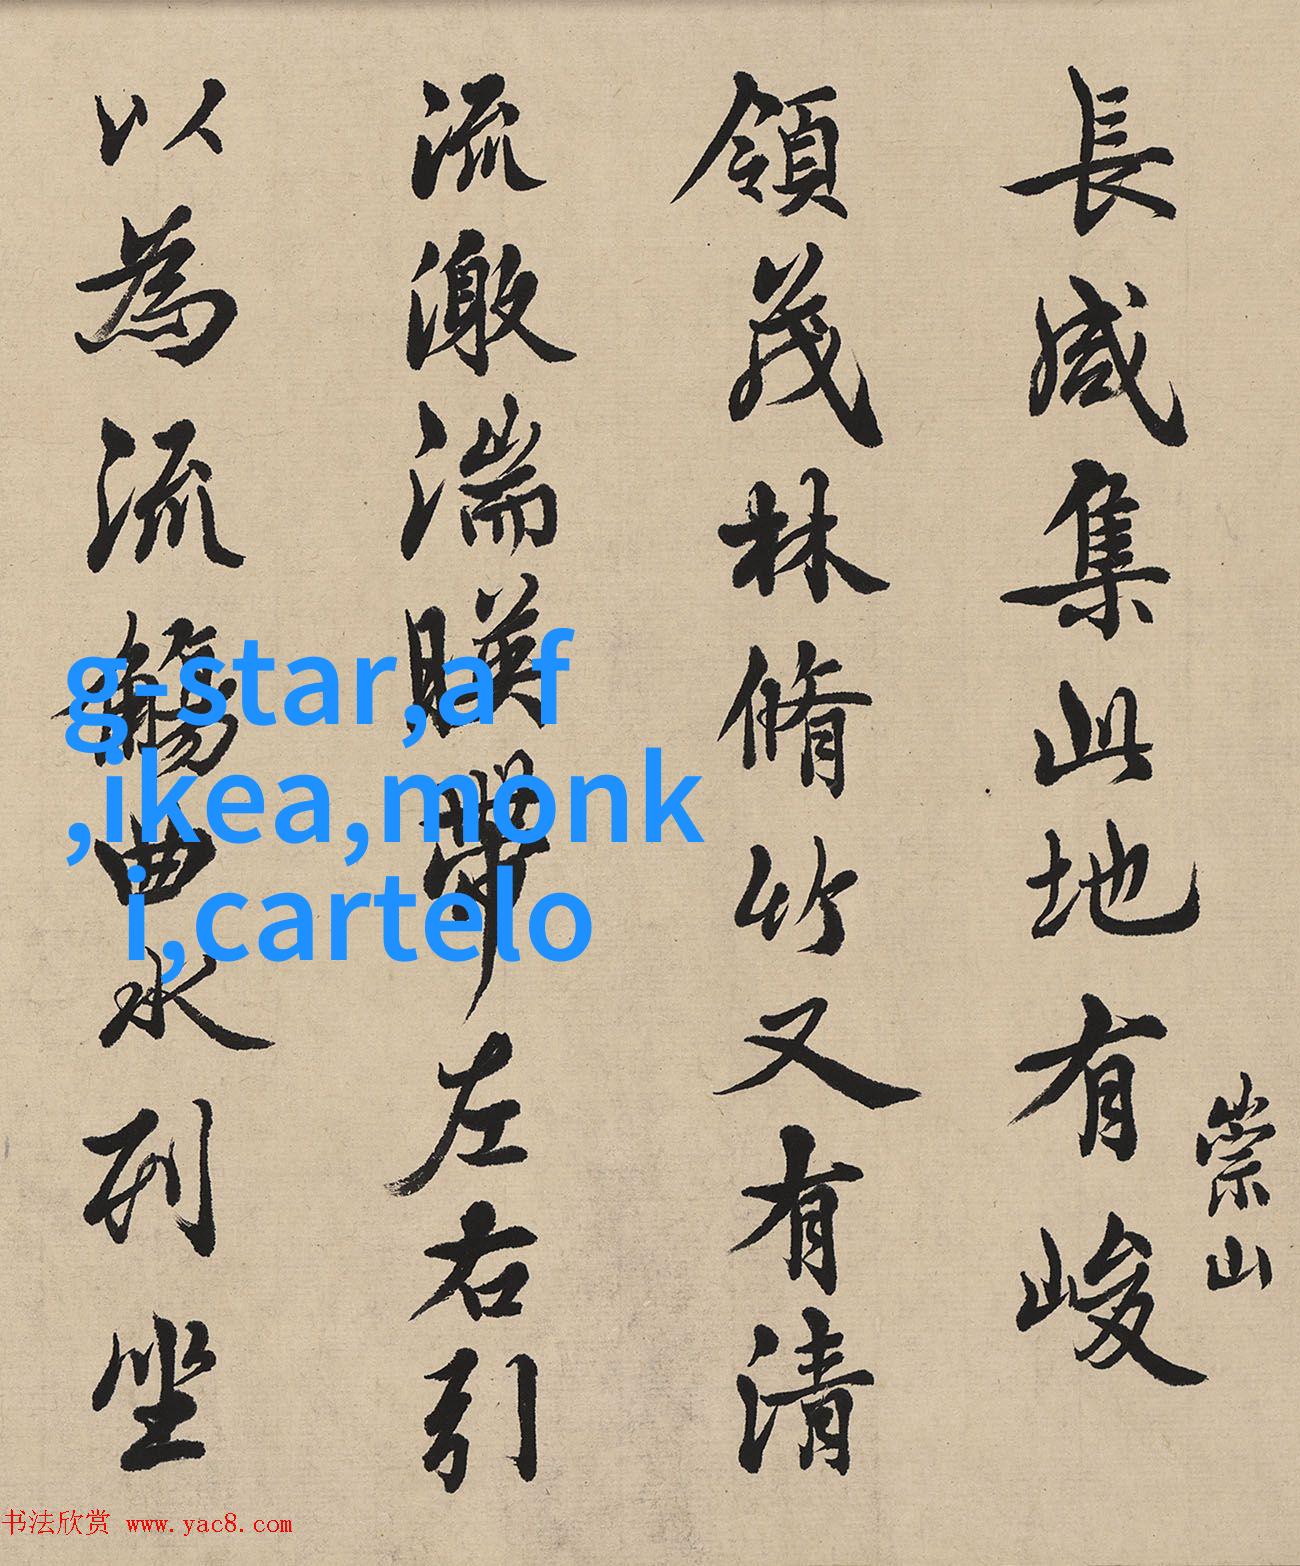 長咸集此地有峻
崇山
領茂林脩竹又有清
流激湍暎帶左右引
以為流觴曲水列坐
g-star,a f
,ikea,monk
i,cartelo
书法欣赏 www.yac8.com